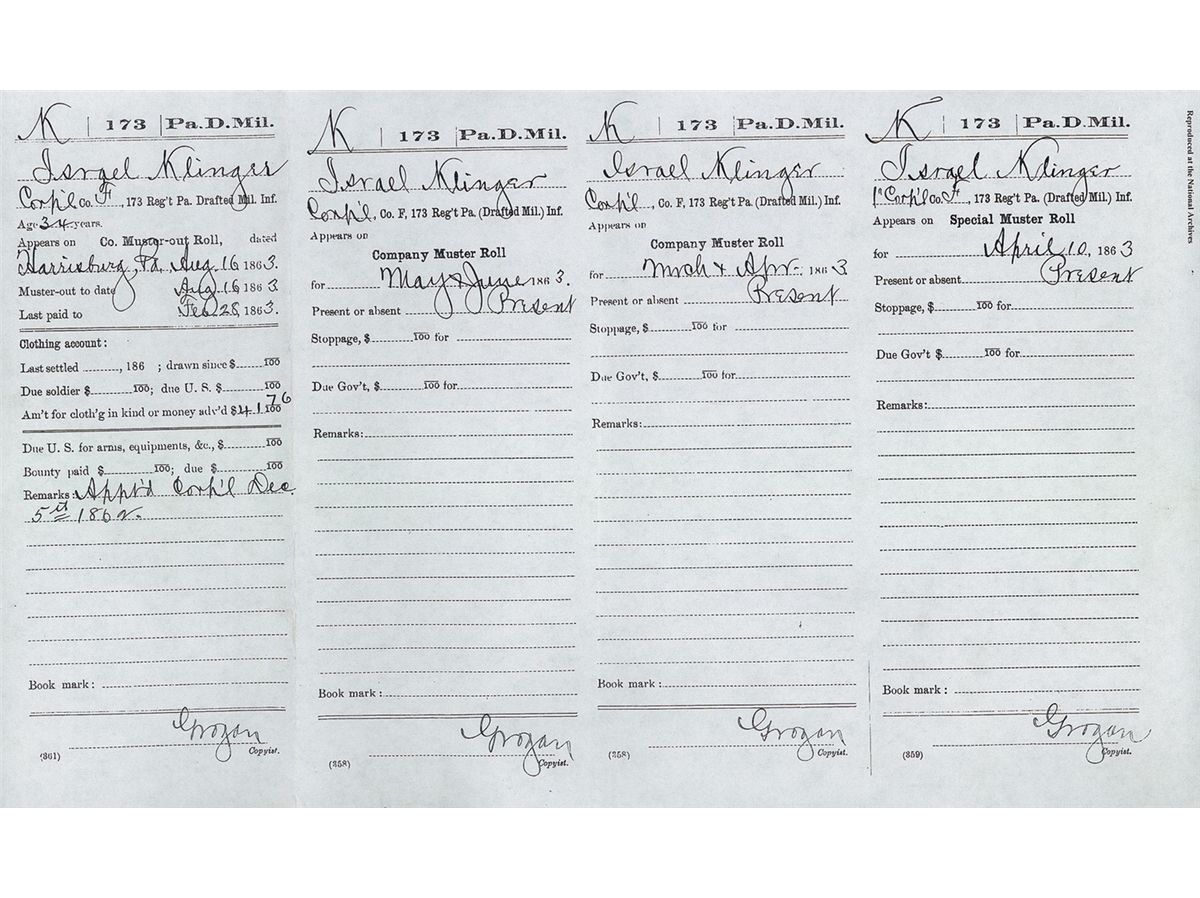 K | 173 | Pa. D. Mil.
Israel Klinger
Corp'l Co. F, 173 Reg't Pa. Drafted Mil. Inf.
Age 34 years.
Appears on Co. Muster-out Roll, dated
Harrisburg, Pa. Aug. 16 1863.
Muster-out to date Aug. 16 1863
Last paid to Feb 28, 1863.
Clothing account:
Last settled, 186 ; drawn since $ 100
Due soldier $ 100; due U. S. $ 100
Am't for cloth'g in kind or money adv'd $41 76 100
Due U. S. for arms, equipments, &c., $ 100
Bounty paid $ 100; due $ 100
Remarks: Appt'd Corp'l Dec.
5st 1862.
Book mark:
Grogan
(361) Copyist.
K | 173 | Pa. D. Mil.
Israel Klinger
Corp'l, Co. F, 173 Reg't Pa. (Drafted Mil.) Inf.
Appears on
Company Muster Roll
for May & June 1863.
Present or absent Present
Stoppage, $ 100 for
Due Gov't, $ 100 for
Remarks:
Book mark:
Grogan
(358) Copyist.
K | 173 | Pa. D. Mil.
Israel Klinger
Corp'l, Co. F, 173 Reg't Pa. (Drafted Mil.) Inf.
Appears on
Company Muster Roll
for Mrch & Apr. 1863
Present or absent Present
Stoppage, $ 100 for
Due Gov't, $ 100 for
Remarks:
Book mark:
Grogan
(358) Copyist.
K | 173 | Pa. D. Mil.
Israel Klinger
1" Corp'l Co. F, 173 Reg't Pa. (Drafted Mil.) Inf.
Appears on Special Muster Roll
for April 10, 1863
Present or absent Present
Stoppage, $ 100 for
Due Gov't $ 100 for
Remarks:
Book mark:
Grogan
(359) Copyist.
Reproduced at the National Archives